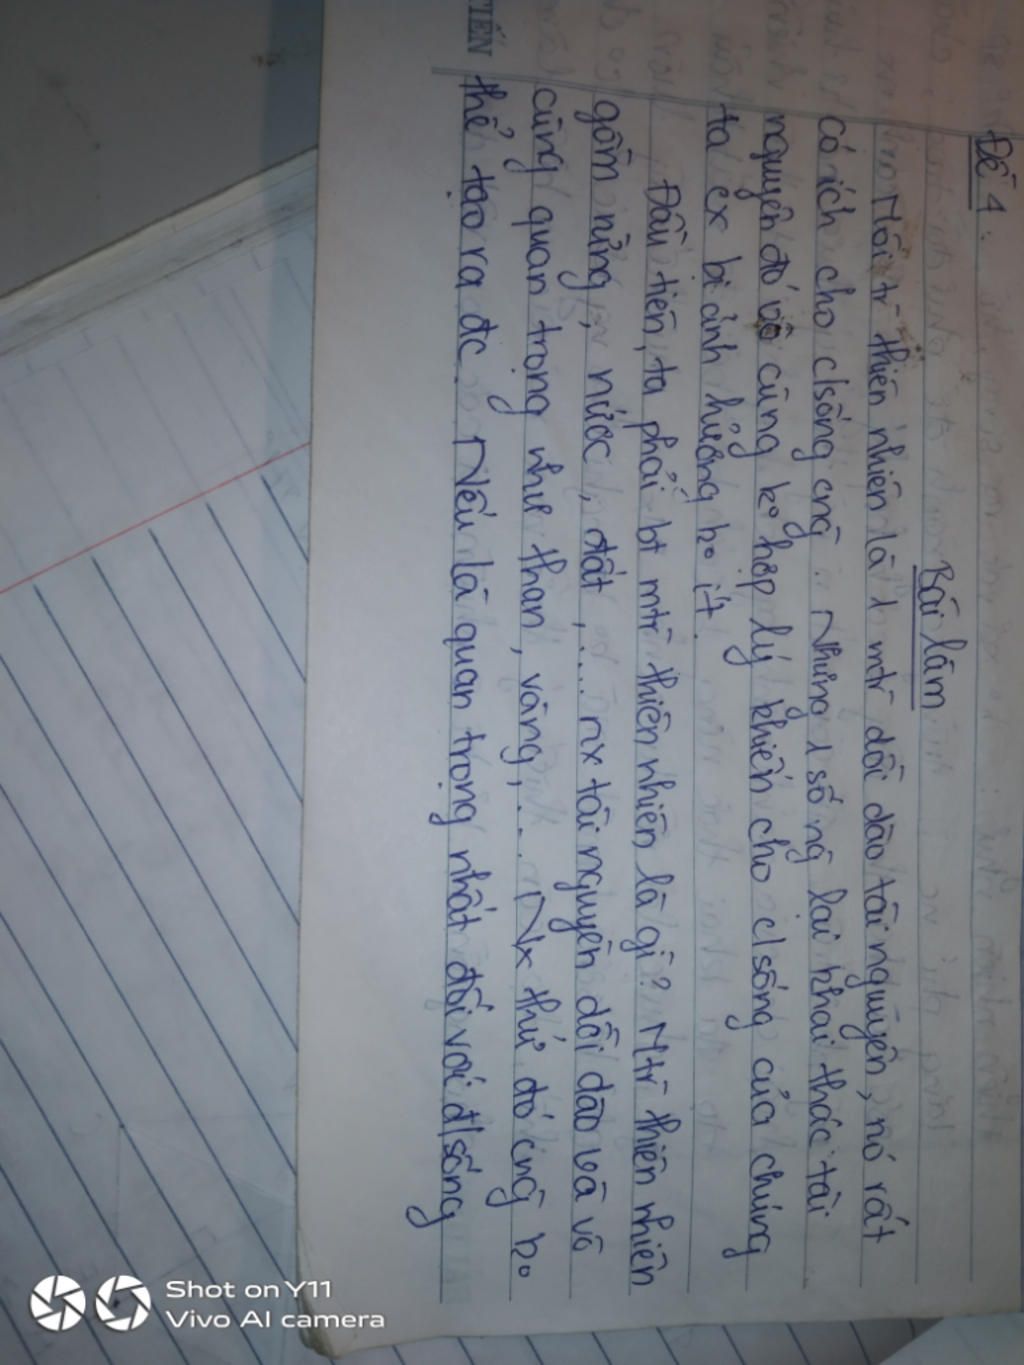 Đề 4.
Bài làm
Môi tr thiên nhiên là 1 mtr dồi dào tài nguyên, nó rất
có ích cho c/sống cng. Nhưng 1 số ng lại khai thác tài
nguyên đó vô cùng ko hợp lý khiến cho c/sống của chúng
ta cx bị ảnh hưởng ko ít.
Đầu tiên, ta phải bt mtr thiên nhiên là gì? Mtr thiên nhiên
gồm rừng, nước, đất,... nx tài nguyên dồi dào và vô
cùng quan trọng như than, vàng,... Nx thứ đó cng ko
thể tạo ra đc. Nếu là quan trọng nhất đối với đ/sống
TIẾN
Shot on Y11
Vivo AI camera